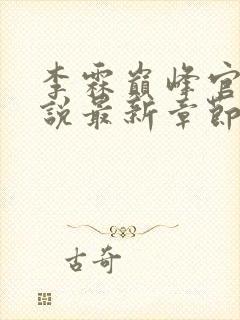 李霖巅峰官
說最新章節
古奇